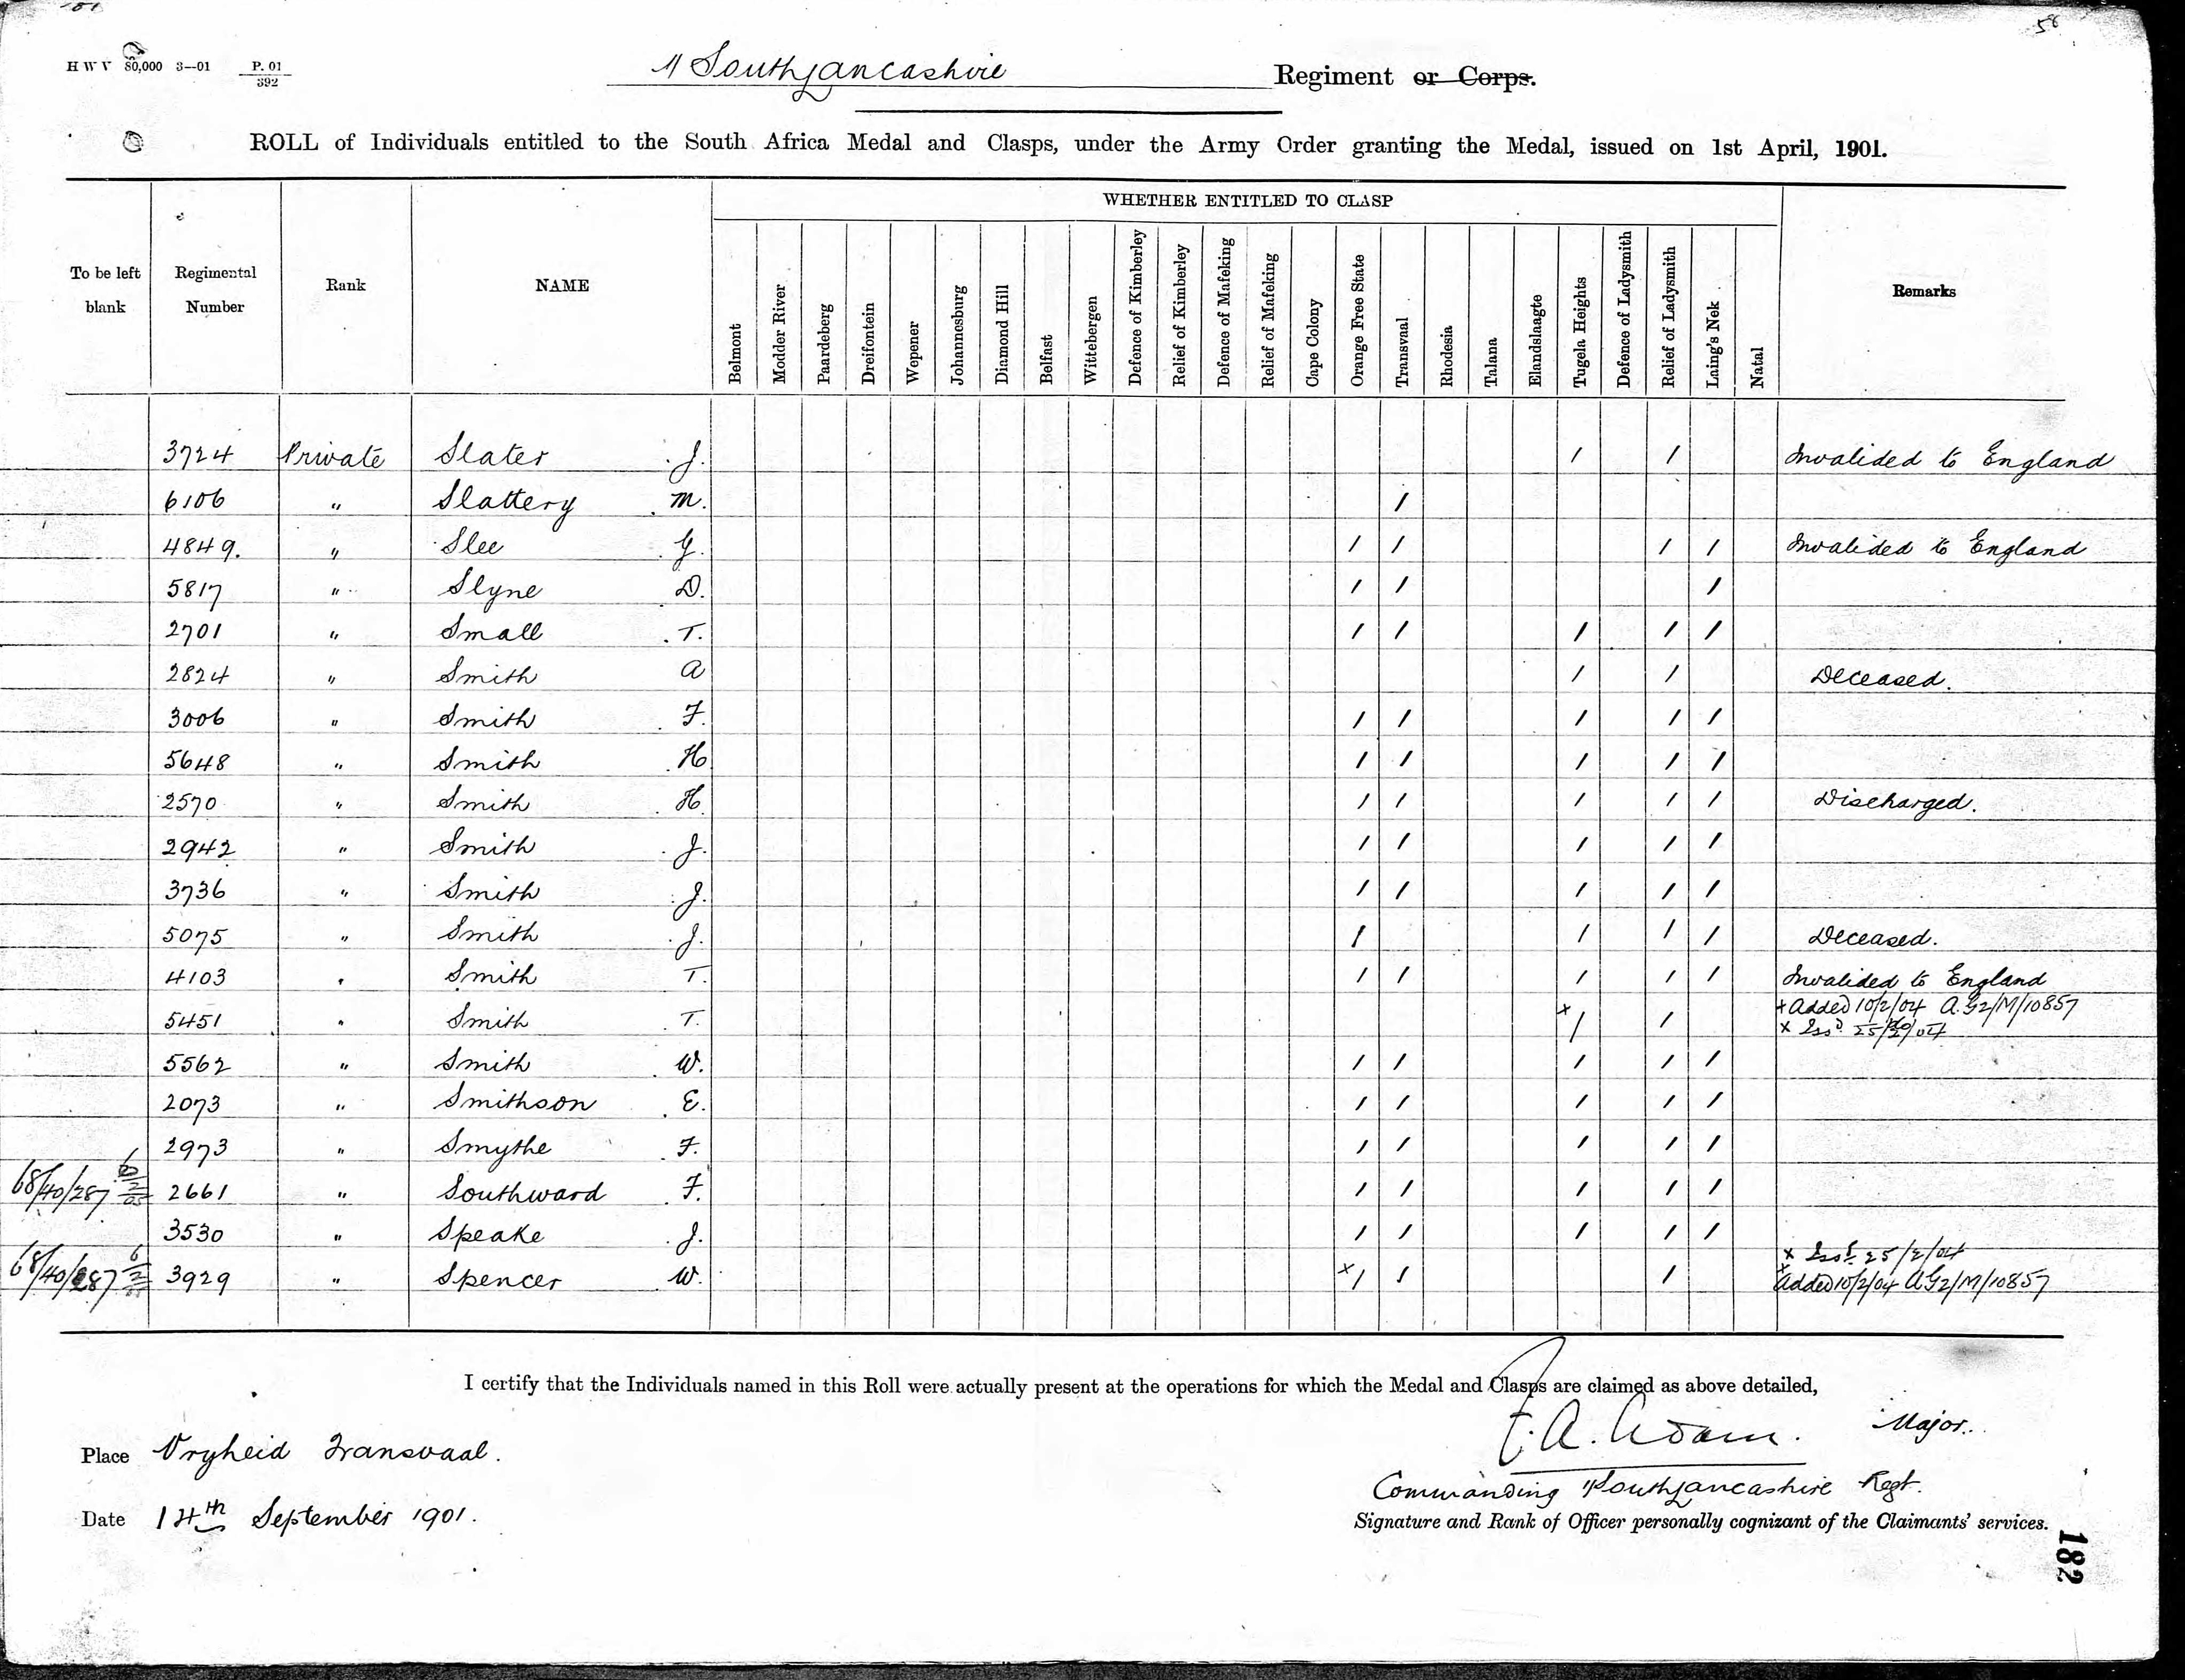 56
H W V 80,000 3—01 P. 01
392
1/ South Lancashire Regiment or Corps.
ROLL of Individuals entitled to the South Africa Medal and Clasps, under the Army Order granting the Medal, issued on 1st April, 1901.
WHETHER ENTITLED TO CLASP
To be left blank
Regimental Number
Rank
NAME
Belmont
Modder River
Paardeberg
Dreifontein
Wepener
Johannesburg
Diamond Hill
Belfast
Wittebergen
Defence of Kimberley
Relief of Kimberley
Defence of Mafeking
Relief of Mafeking
Cape Colony
Orange Free State
Transvaal
Rhodesia
Talana
Elandslaagte
Tugela Heights
Defence of Ladysmith
Relief of Ladysmith
Laing's Nek
Natal
Remarks
3724 Private Slater J. / / Invalided to England
6106 " Slattery M. /
4849. " Slee G. / / / / Invalided to England
5817 " Slyne D. / / /
2701 " Small T. / / / / /
2824 " Smith A / / Deceased.
3006 " Smith F. / / / / /
5648 " Smith H / / / / /
2570 " Smith H. / / / / / Discharged.
2942 " Smith J. / / / / /
3736 " Smith J. / / / / /
5075 " Smith J. / / / / Deceased.
4103 " Smith T. / / / / / Invalided to England
5451 " Smith T. x/ / x Added 10/2/04 A.G2/M/10857
x Issd. 25/2/04
5562 " Smith W. / / / / /
2073 " Smithson E. / / / / /
2973 " Smythe F. / / / / /
68/40/287 2661 " Southward F. / / / / /
3530 " Speake J. / / / / /
x Issd. 25/2/04
68/40/287 3929 " Spencer W. x/ / / x Added 10/2/04 AG2/M/10857
I certify that the Individuals named in this Roll were actually present at the operations for which the Medal and Clasps are claimed as above detailed,
F. A. Adam. Major.
Place Vryheid Transvaal.
Commanding 1/South Lancashire Regt.
Date 14th September 1901.
Signature and Rank of Officer personally cognizant of the Claimants' services.
182